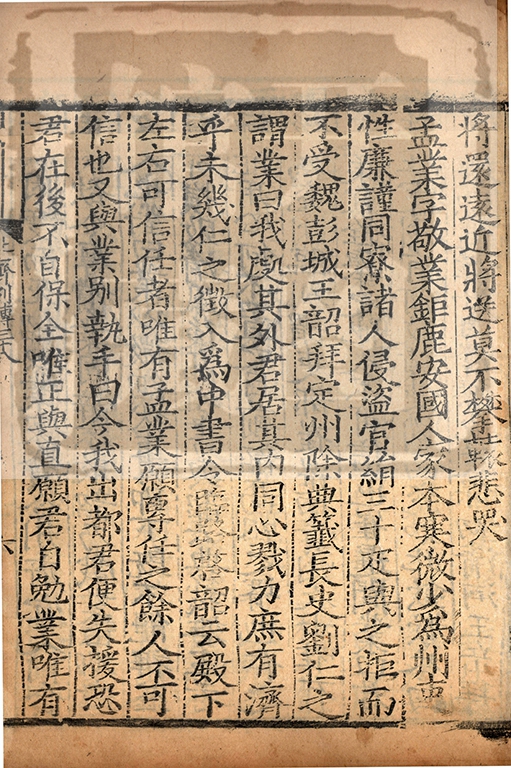 將還遠近將送莫不攀轅悲哭
孟業字敬業鉅鹿安國人家本寒微少為州吏
性廉謹同寮諸人侵盜官絹三十疋與之拒而
不受魏彭城王韶拜定州除典籖長史劉仁之
謂業曰我處其外君居其内同心戮力庶有濟
乎未幾仁之徵入爲中書令臨發啓韶云殿下
左右可信任者唯有孟業願專任之餘人不可
信也又與業别執手曰今我出都君便失援恐
君在後不自保全唯正與直願君自勉業唯有